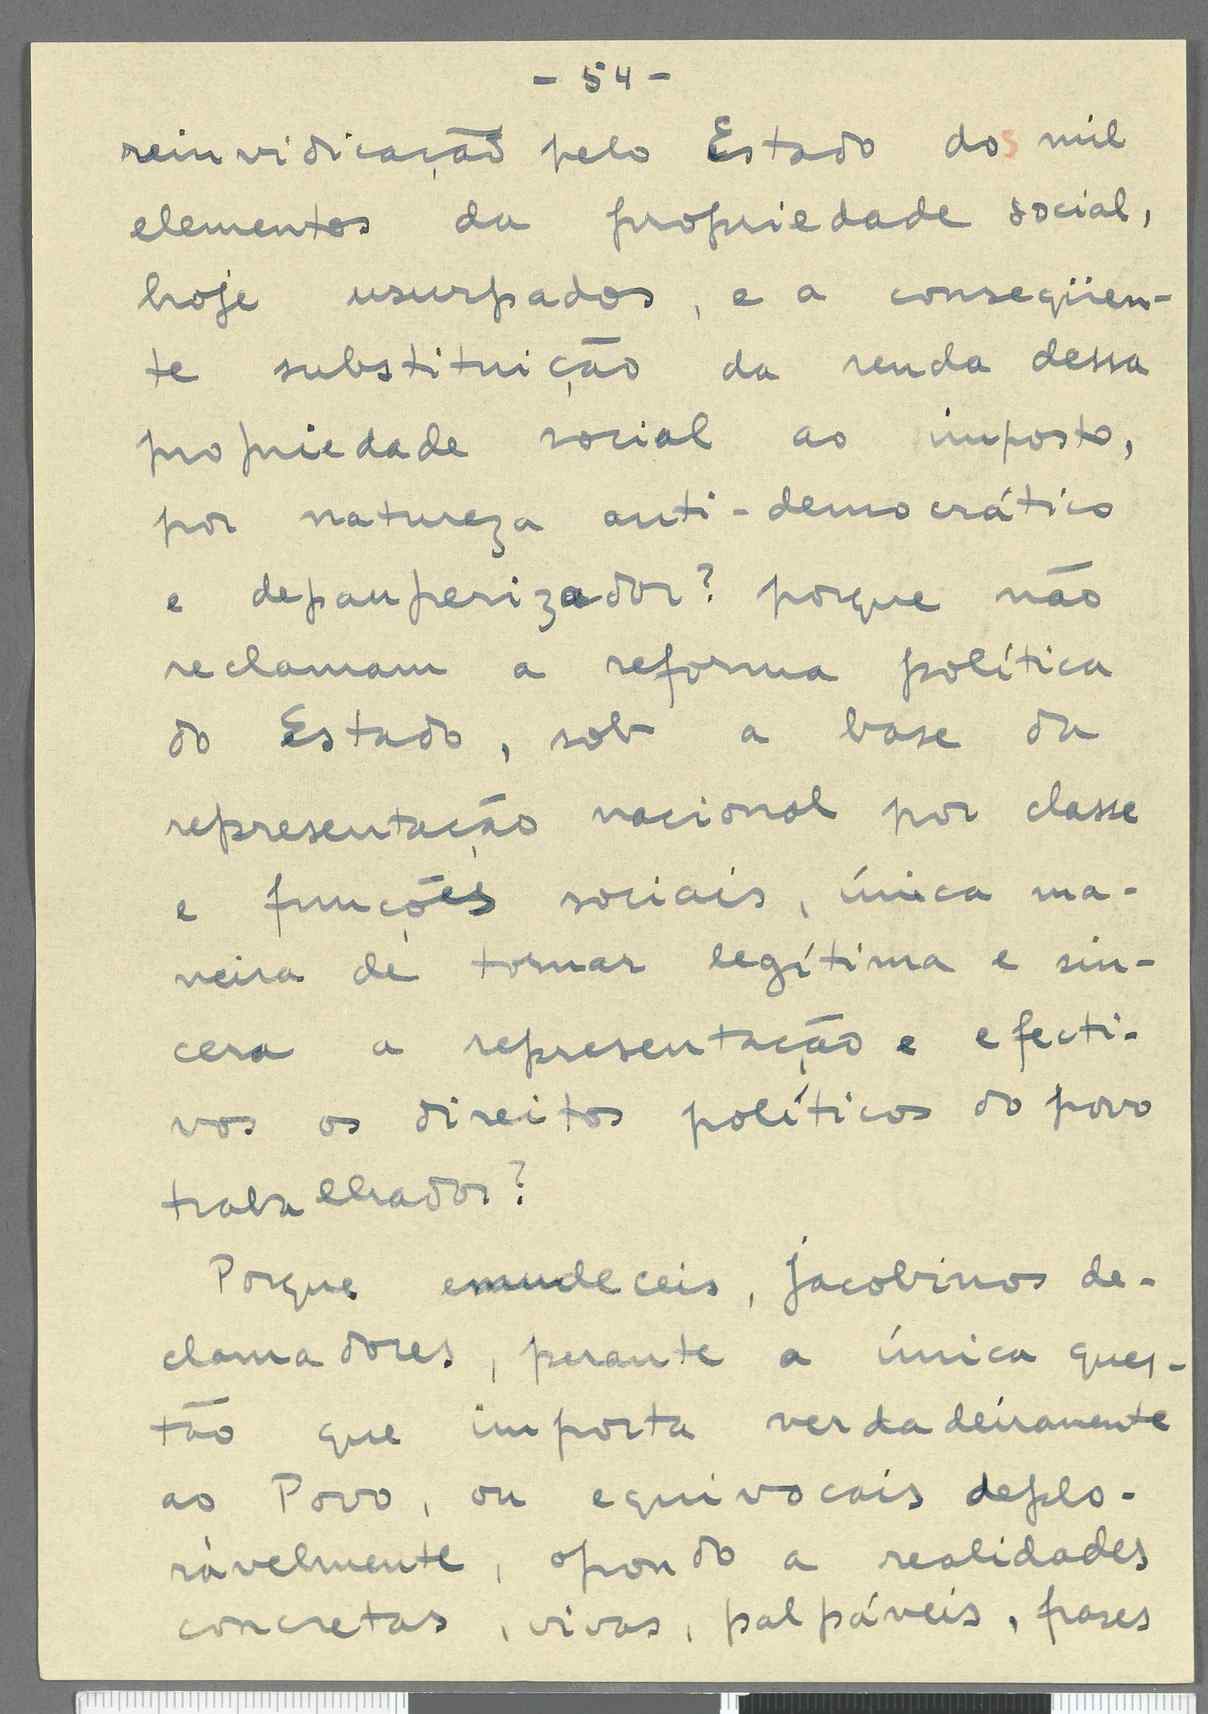 - 54 -
reinvidicação pelo Estado dos mil
elementos da propriedade social,
hoje usurpados, e a conseqüen-
te substituição da renda dessa
propriedade social ao imposto,
por natureza anti-democrático
e depauperizador? porque não
reclamam a reforma política
do Estado, sob a base da
representação nacional por classe
e funções sociais, única ma-
neira de tornar legítima e sin-
cera a representação e efecti-
vos os direitos políticos do povo
trabalhador?
Porque emudeceis, jacobinos de-
clamadores, perante a única ques-
tão que importa verdadeiramente
ao Povo, ou equivocais deplo-
ràvelmente, opondo a realidades
concretas, vivas, palpáveis, frases